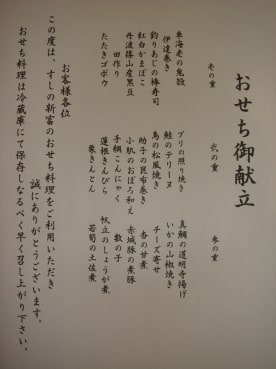 おせち御献立
壱の重
車海老の鬼殻
伊達巻き
釣りあじの棒寿司
紅白かまぼこ
丹波篠山産黒豆
田作り
たたきゴボウ
弐の重
ブリの照り焼き
鮭のテリーヌ
鳥の松風焼き
助子の昆布巻き
小肌のおぼろ和え
手綱こんにゃく
蓮根きんぴら
栗きんとん
参の重
真鯛の道明寺揚げ
いかの山椒焼き
チーズ寄せ
杏の甘煮
赤城豚の煮豚
数の子
帆立のしょうが煮
若筍の土佐煮
お客様各位
この度は、すしの新富のおせち料理をご利用いただき
誠にありがとうございます。
おせち料理は冷蔵庫にて保存しなるべく早く召し上がり下さい。